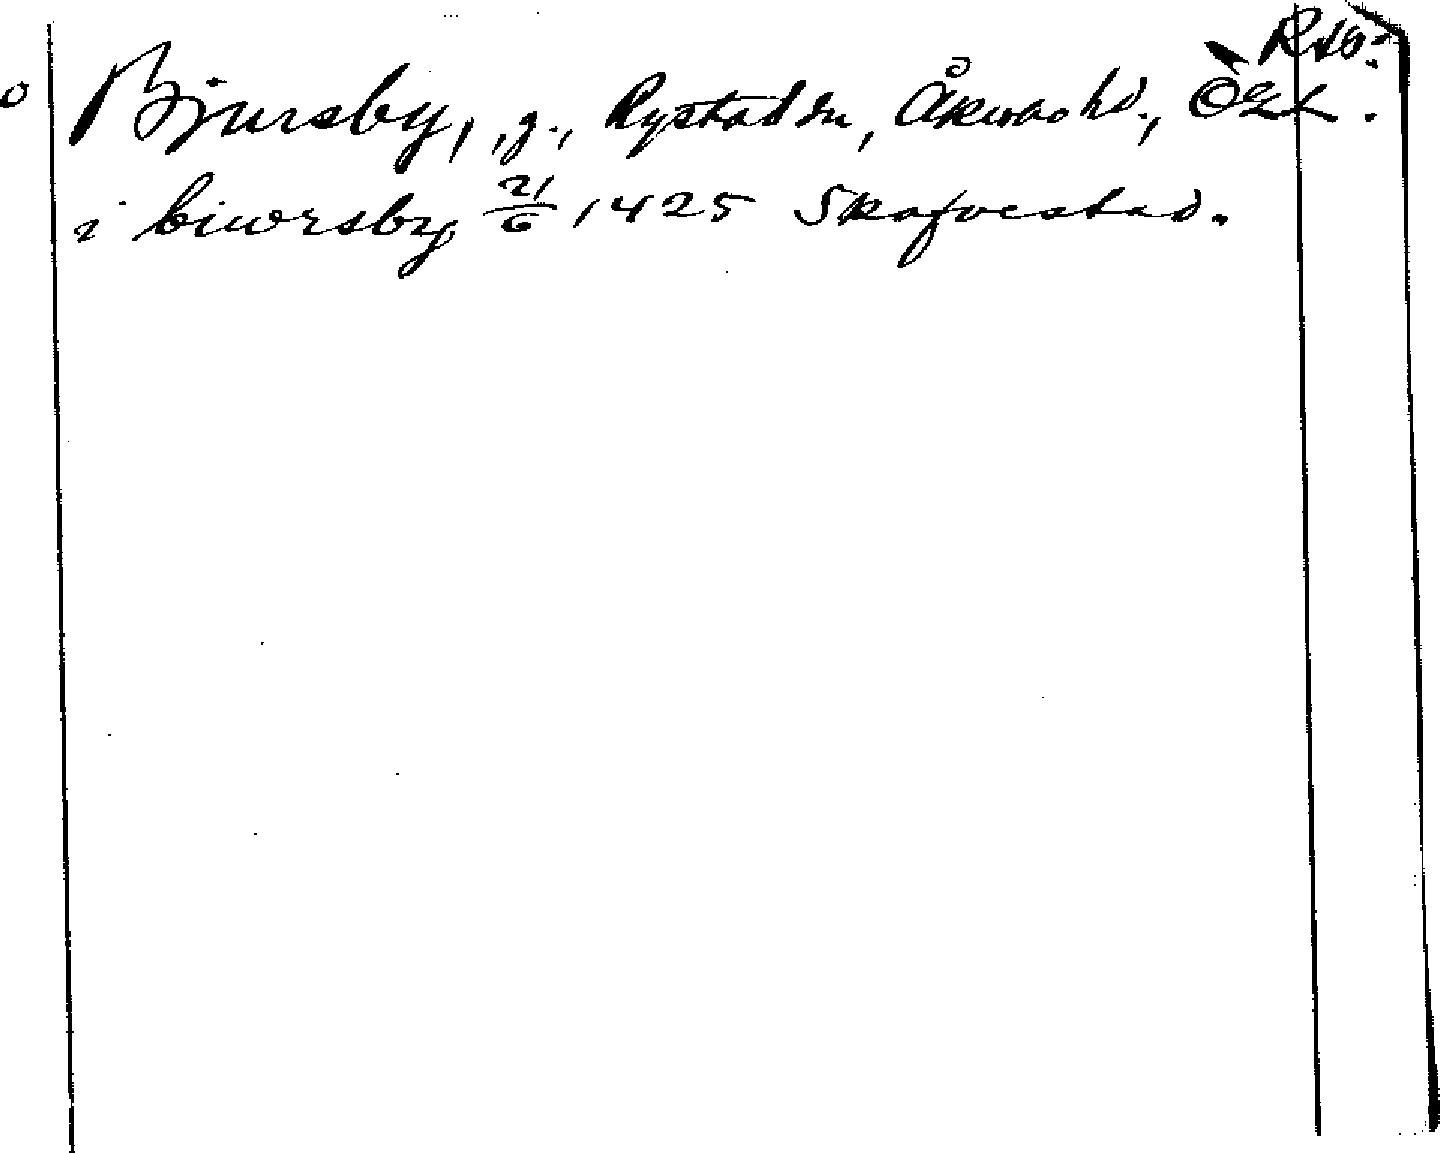 Bjursby, g., Rystad sn, Åkerbo hd, ÖgL.
i biworsby 21/6 1425 Skofvestad.